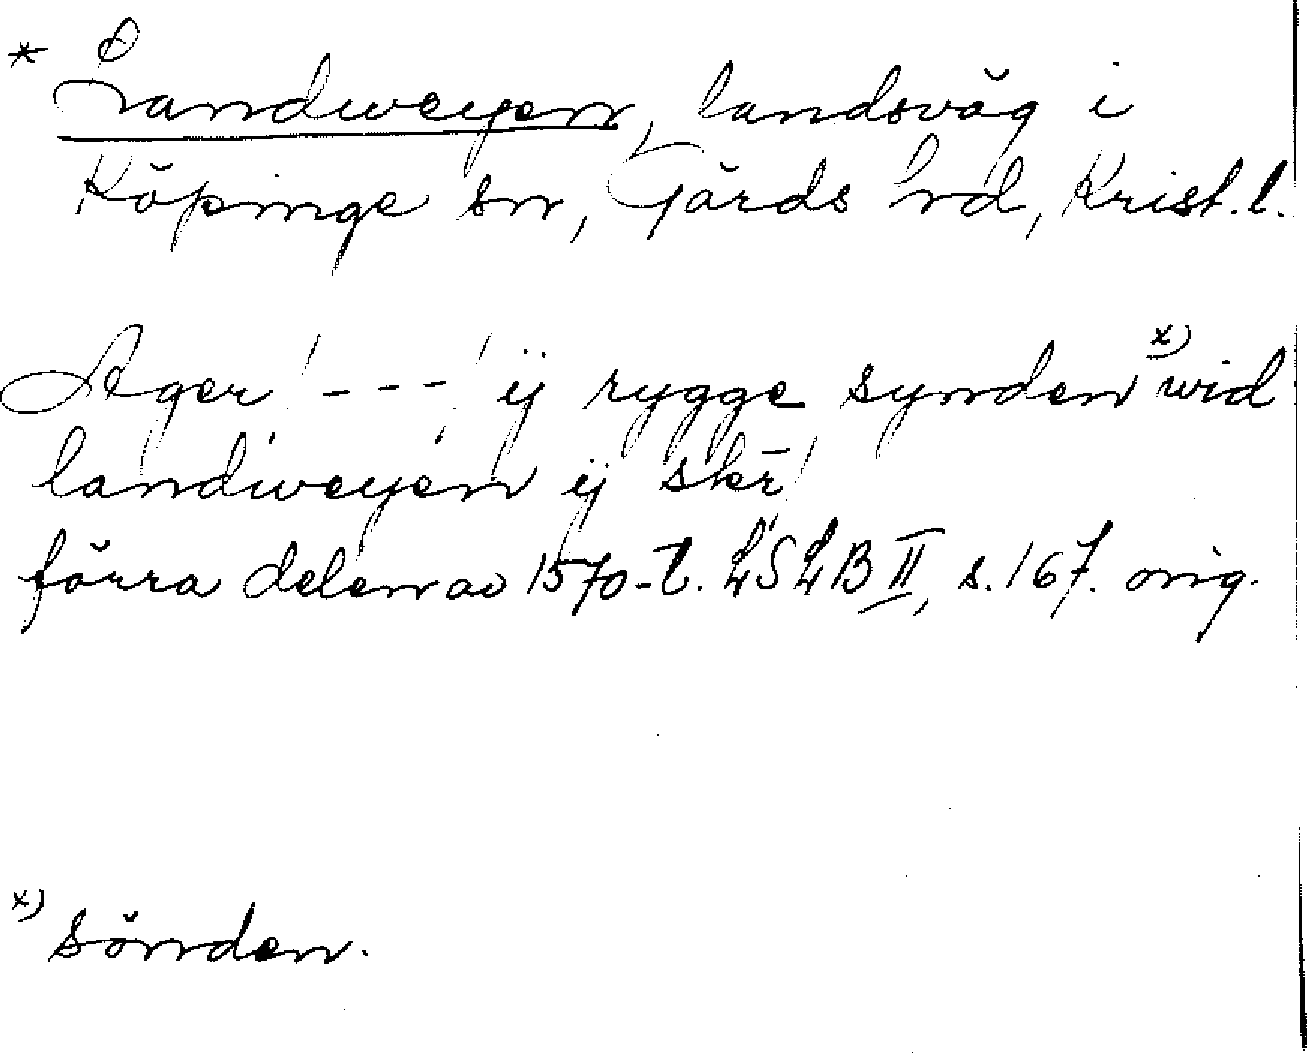 * Landweyen, landsväg i
Köpinge sn, Gärds hd, Krist. l.
Ager /---/ ij rygge synden x) wid
landweyen ij skr̄/
förra delen av 1570-t. LSLB II, s. 167. orig.
x) sönden.